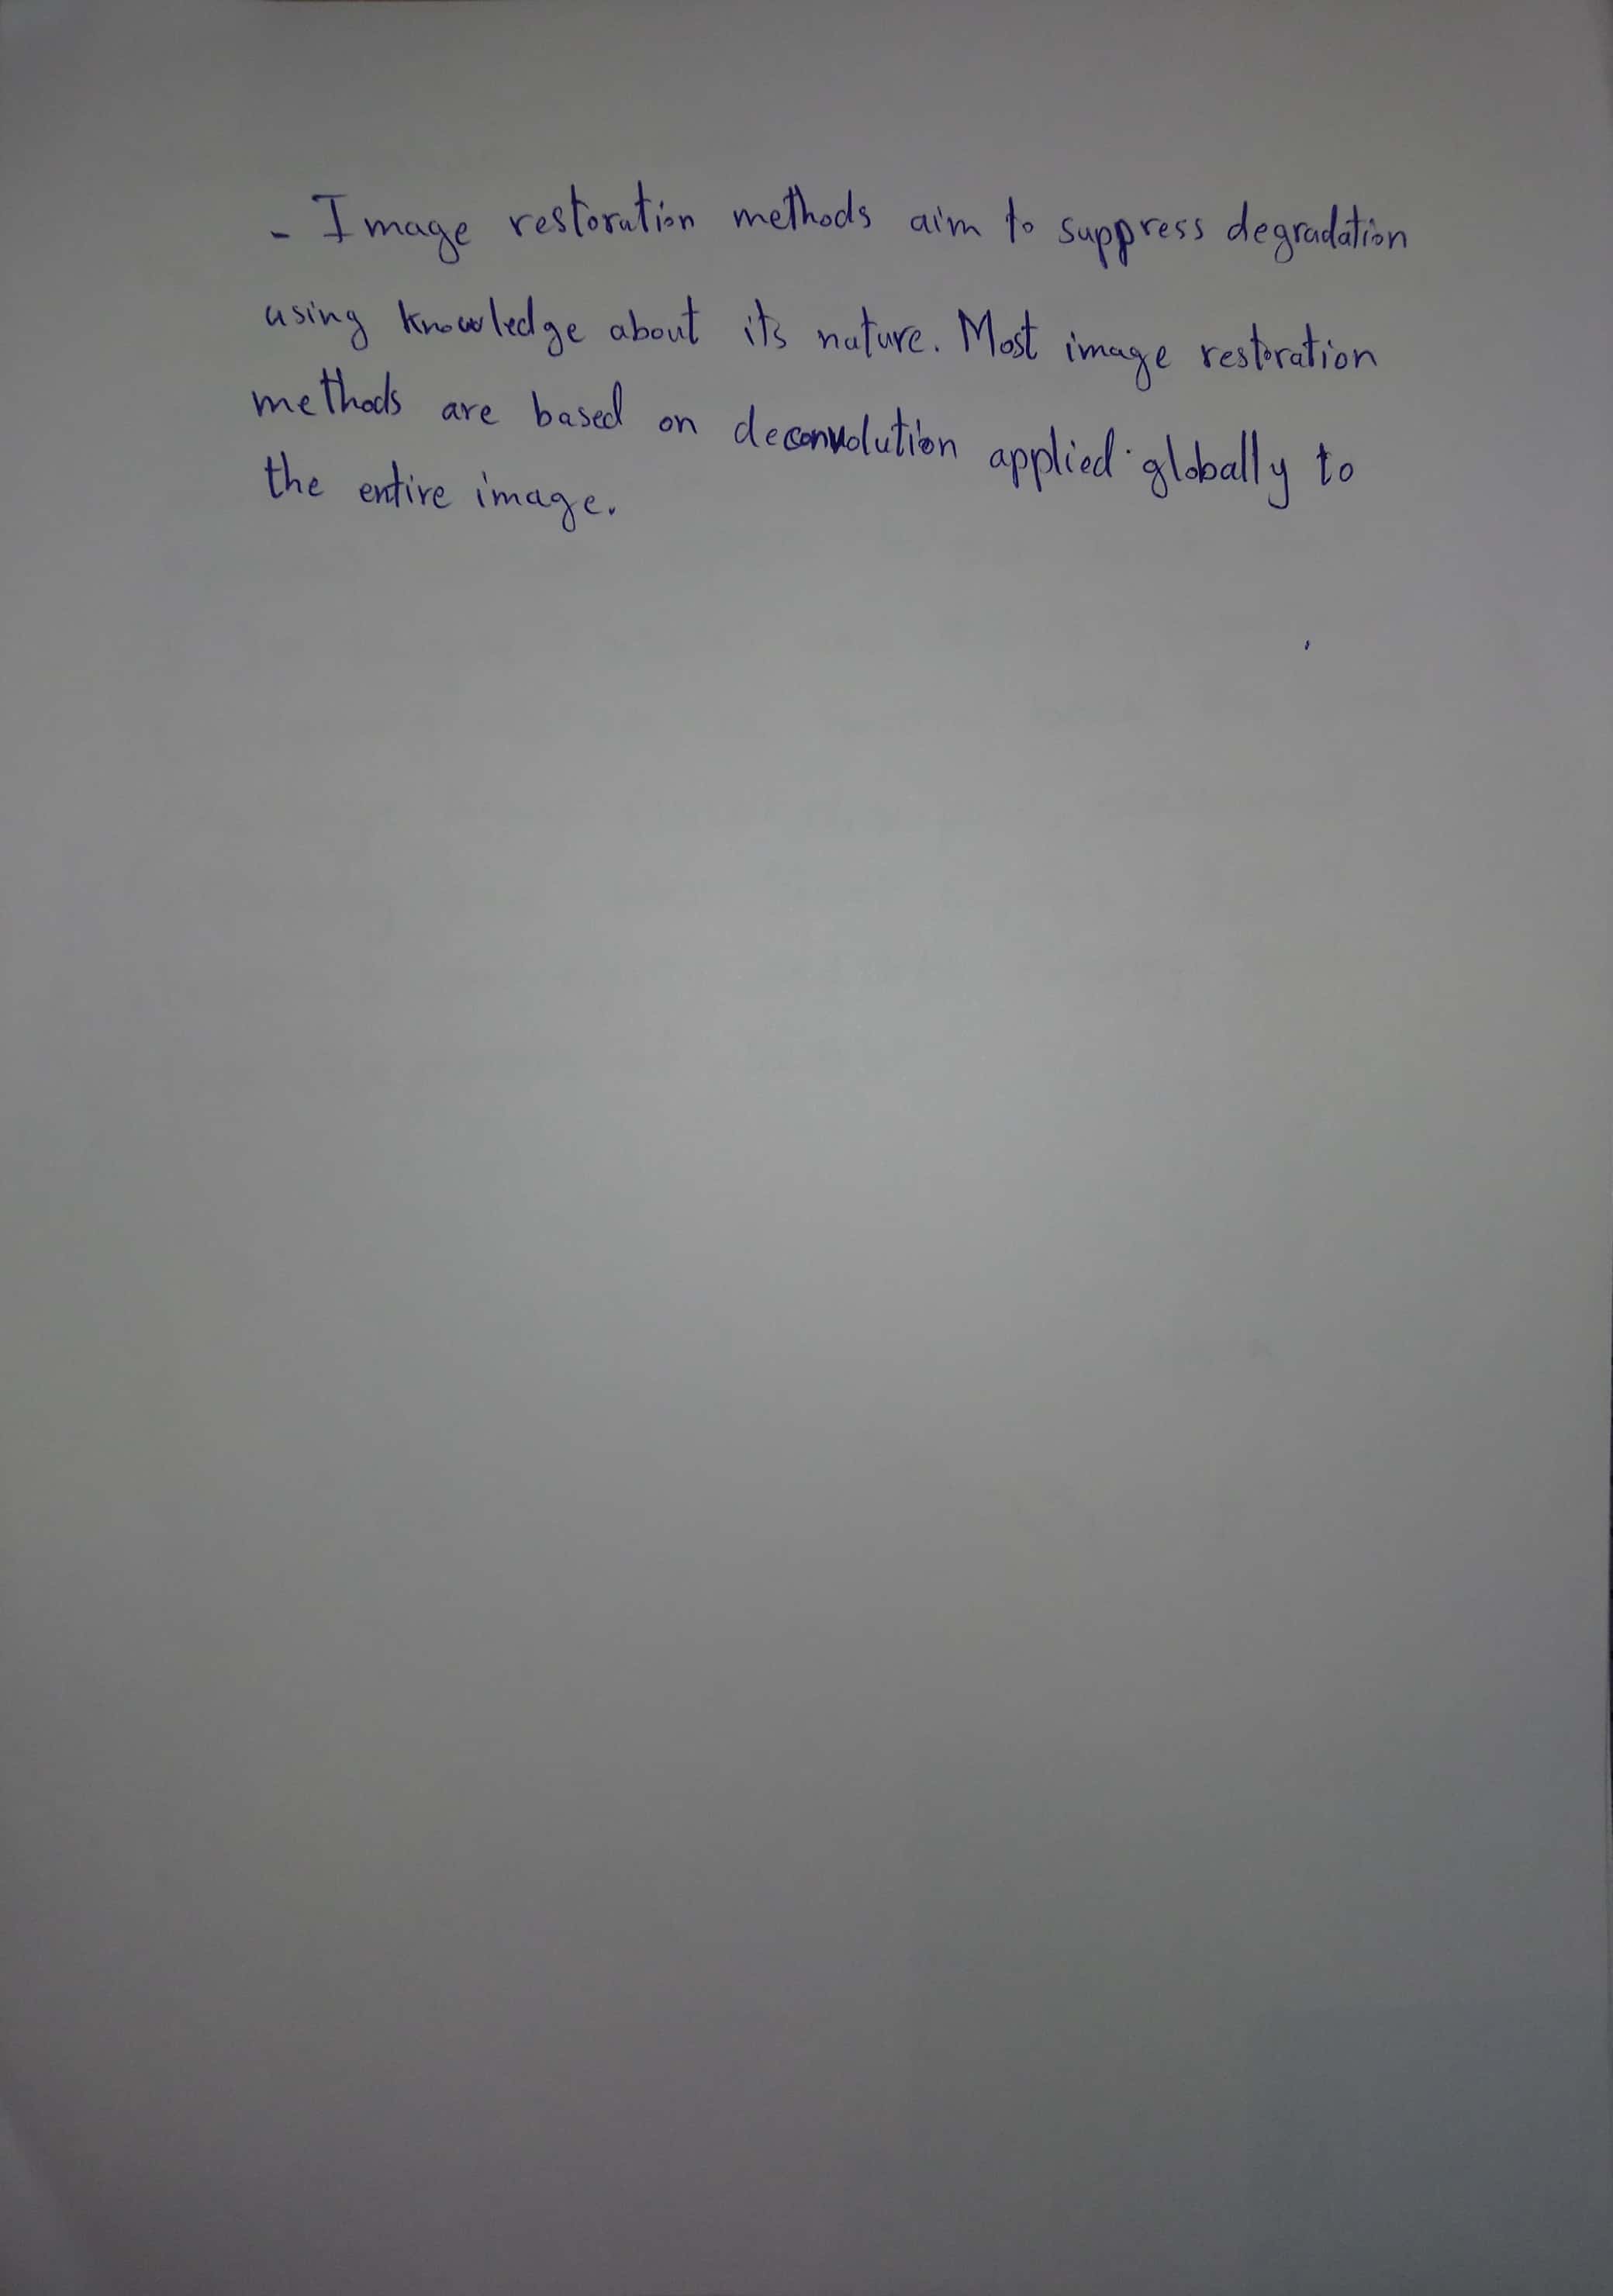 - Image restoration methods aim to suppress degradation
using knowledge about its nature. Most image restoration
methods are based on deconvolution applied globally to
the entire image.